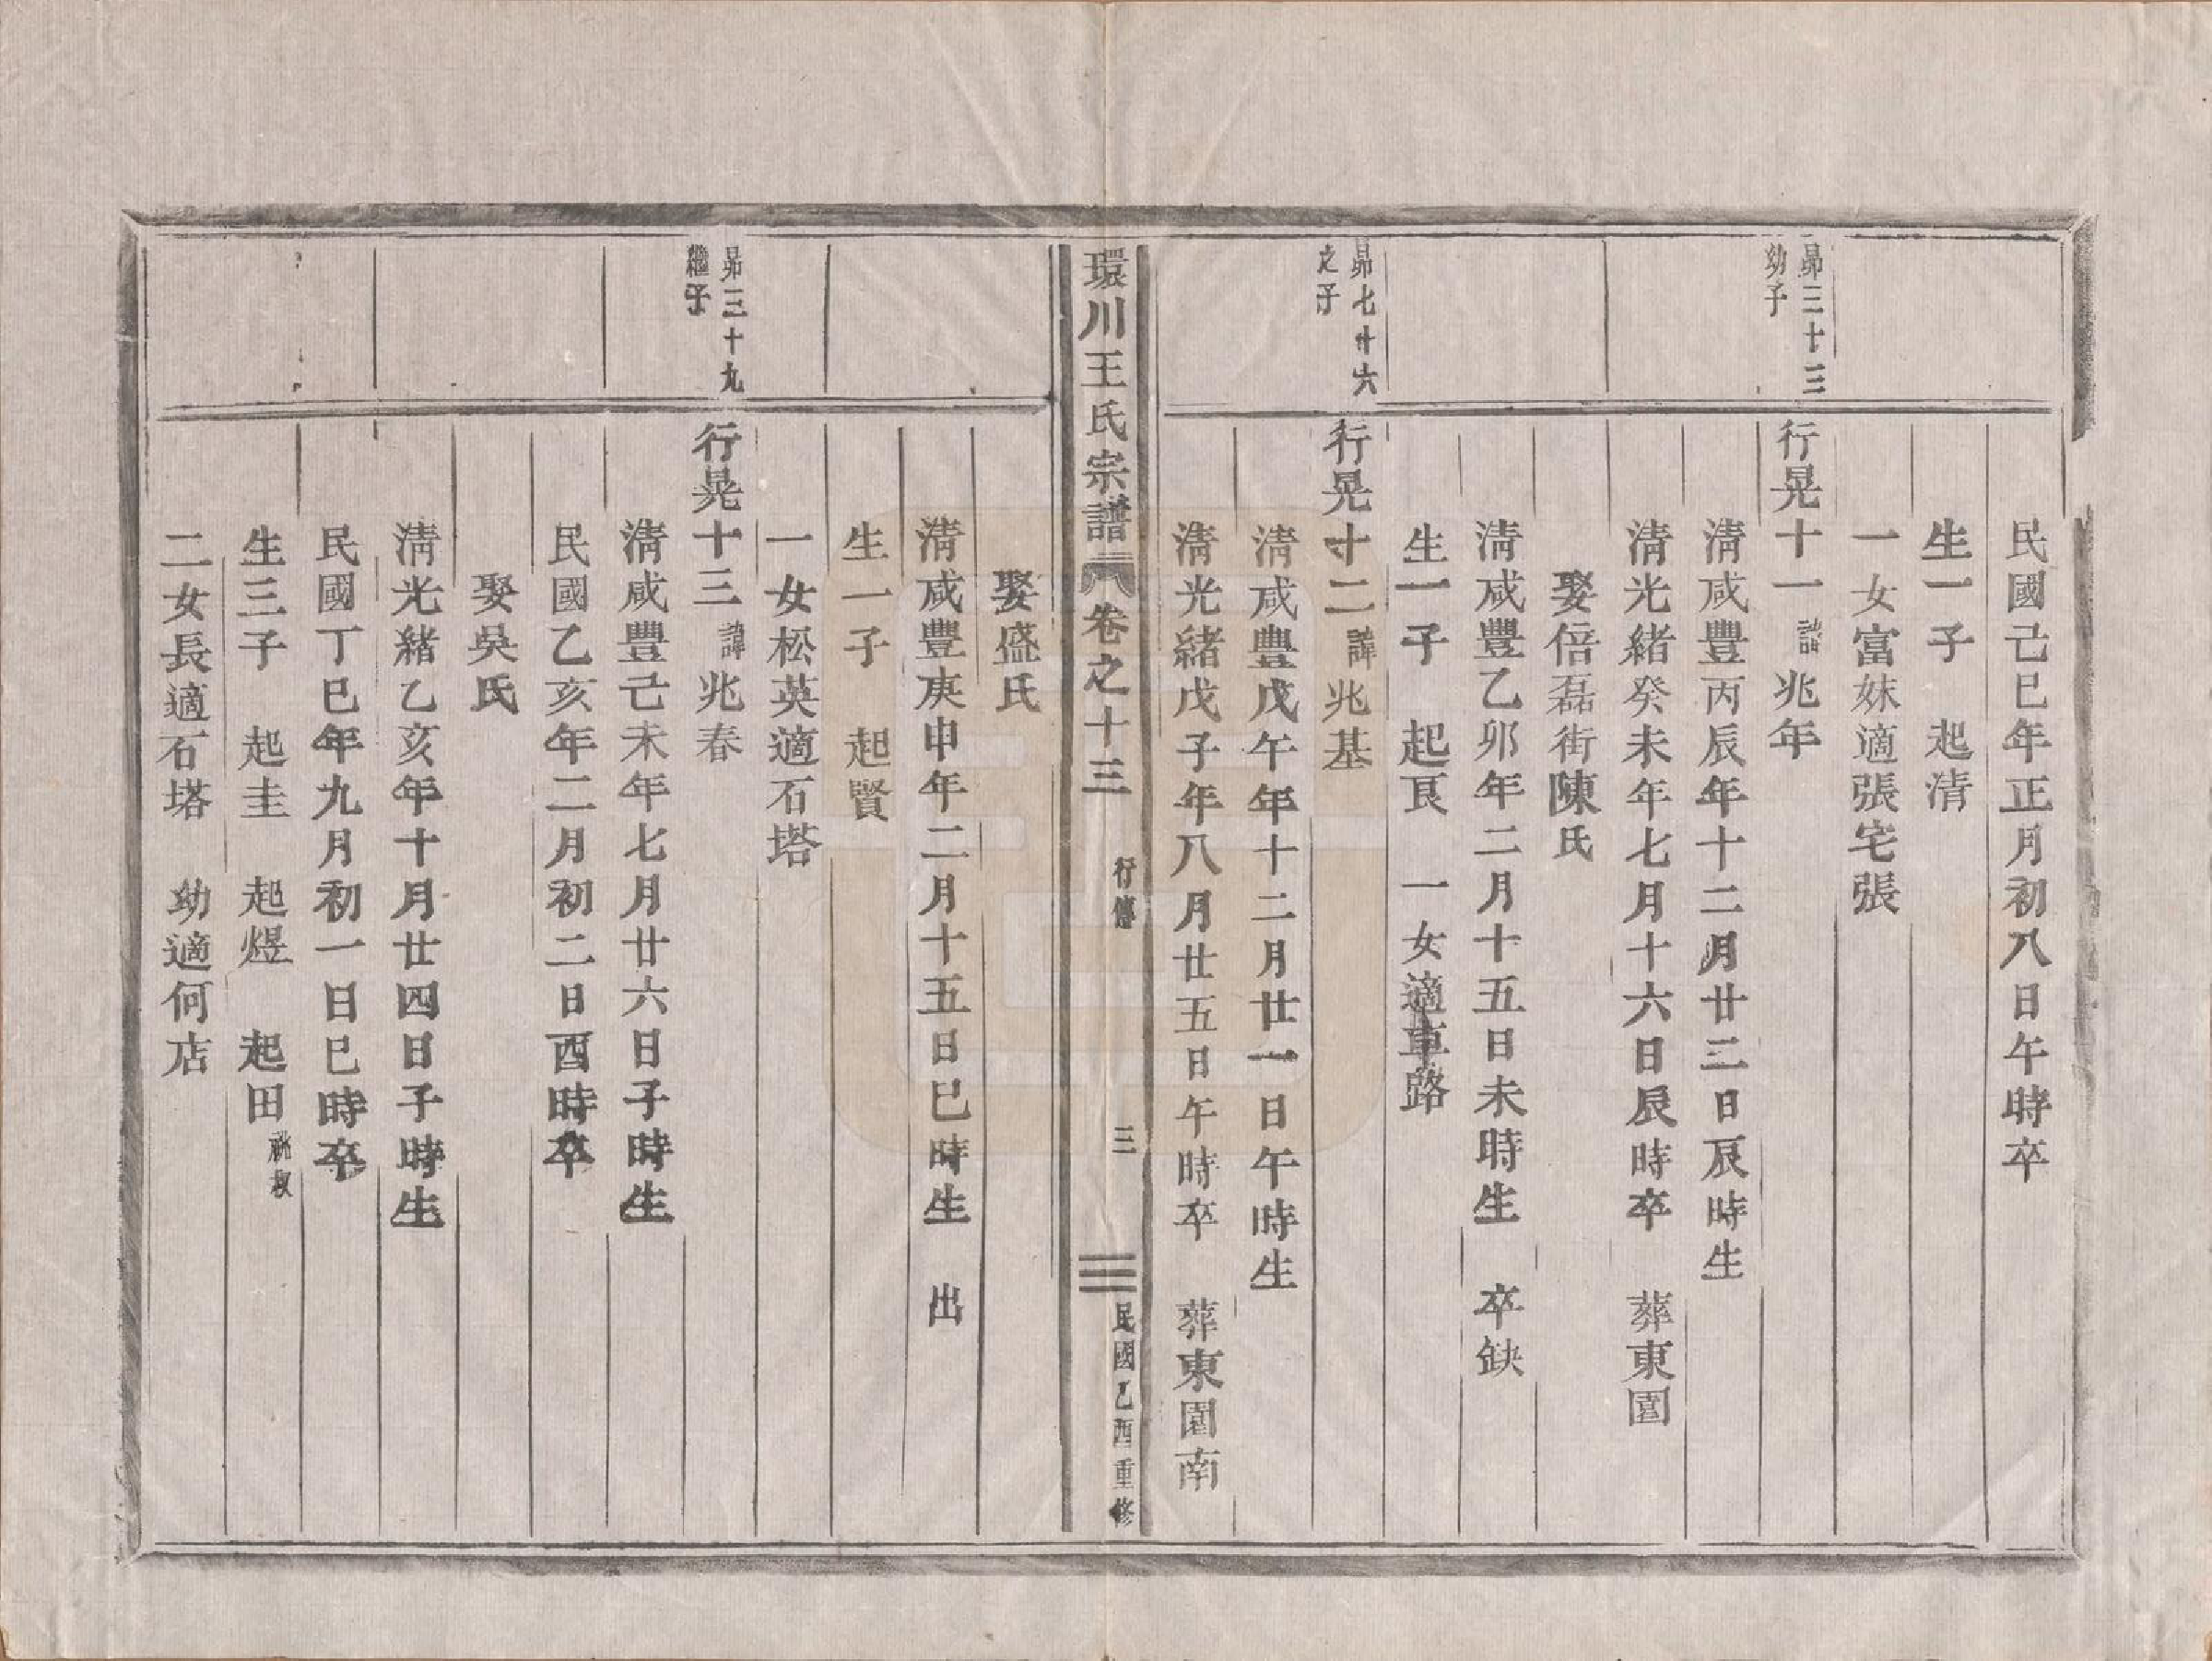 民國己巳年正月初八日午時卒
生一子　起清
一女富妹適張宅張
昴三十三
幼子
行晃十一諱兆年
清咸豐丙辰年十二月廿三日辰時生
清光緒癸未年七月十六日辰時卒　葬東園
娶倍磊街陳氏
清咸豐乙卯年二月十五日未時生　卒缺
生一子　起艮　一女適車路
昴七廿六
之子
行晃十二諱兆基
清咸豐戊午年十二月廿一日午時生
清光緒戊子年八月廿五日午時卒　葬東園南
環川王氏宗譜　卷之十三　行傳　三　民國乙酉重修
娶盛氏
清咸豐庚申年二月十五日巳時生　出
生一子　起賢
一女松英適石塔
昴三十九
繼子
行晃十三諱兆春
清咸豐己未年七月廿六日子時生
民國乙亥年二月初二日酉時卒
娶吳氏
清光緒乙亥年十月廿四日子時生
民國丁巳年九月初一日巳時卒
生三子　起圭　起煜　起田
二女長適石塔　幼適何店